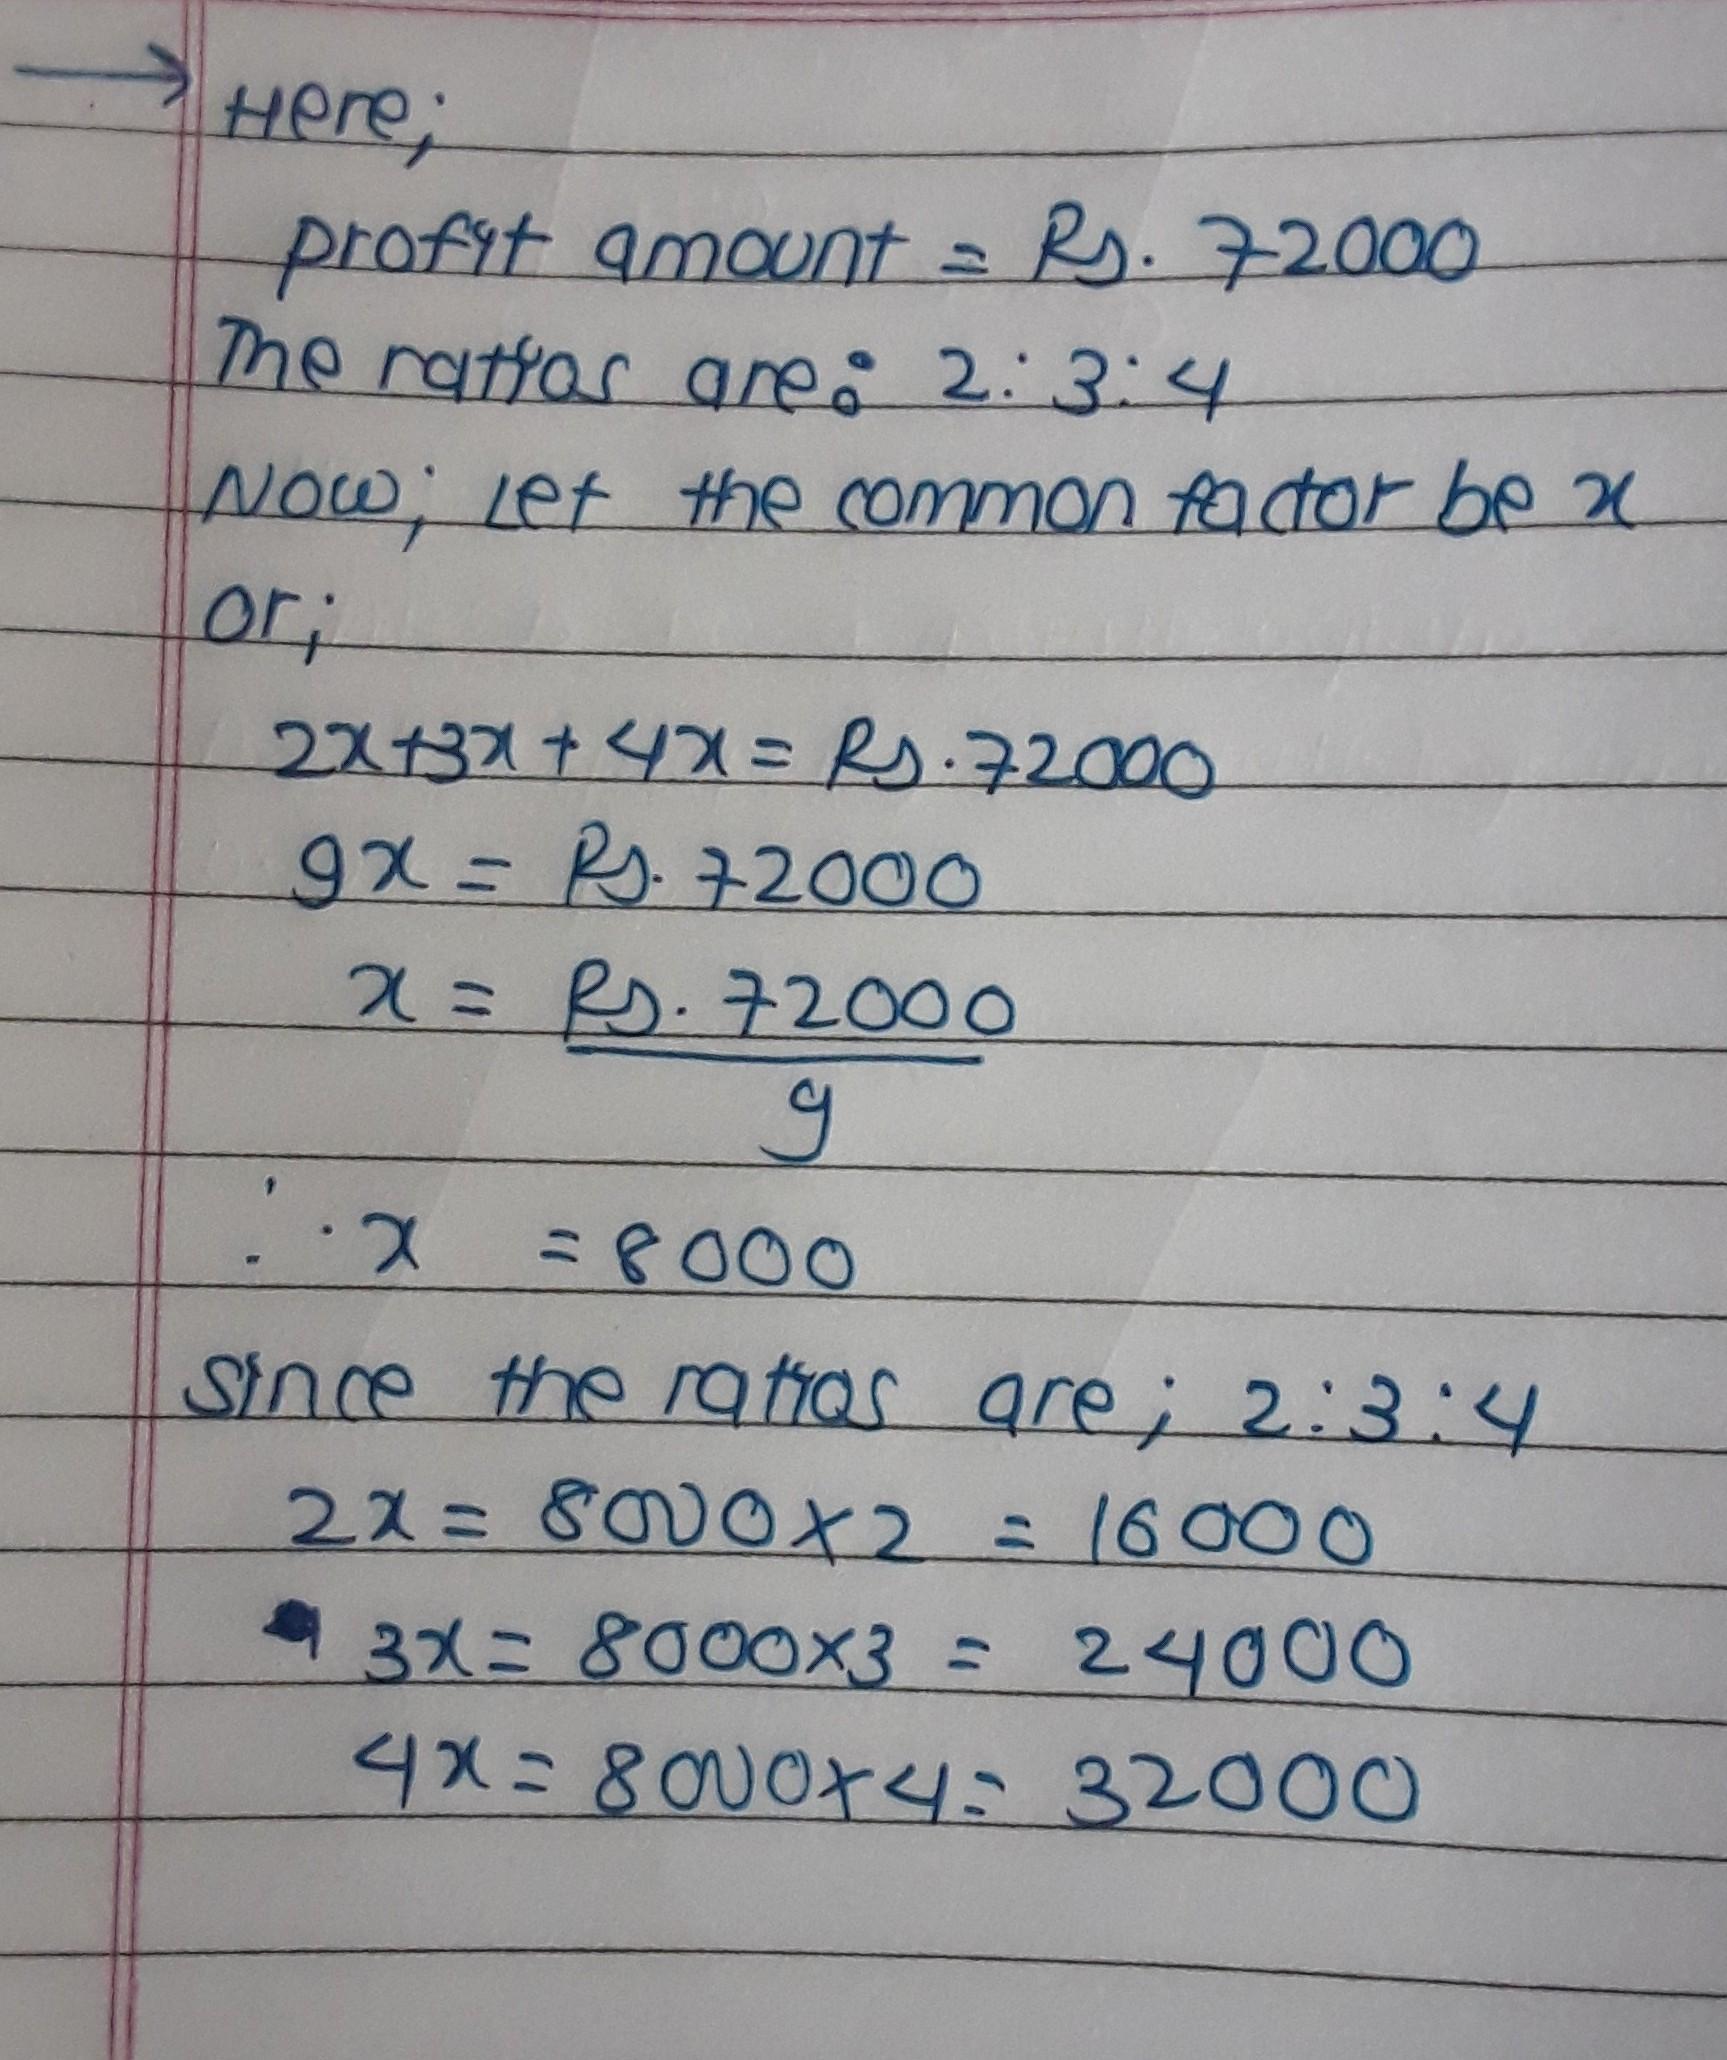 → Here;
profit amount = Rs. 72000
The ratios are: 2:3:4
Now; Let the common factor be x
or;
2x+3x+4x = Rs.72000
9x = Rs. 72000
x = Rs. 72000
9
∴ x = 8000
since the ratios are; 2:3:4
2x = 8000×2 = 16000
3x = 8000×3 = 24000
4x = 8000×4 = 32000